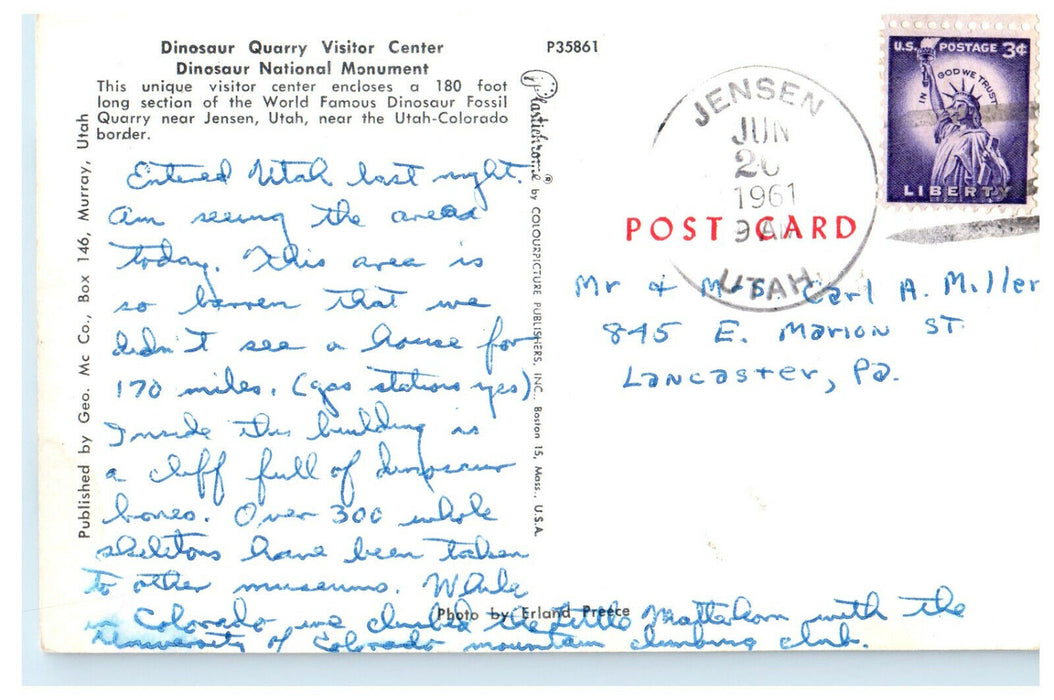 Dinosaur Quarry Visitor Center
Dinosaur National Monument
This unique visitor center encloses a 180 foot
long section of the World Famous Dinosaur Fossil
Quarry near Jensen, Utah, near the Utah-Colorado
border.
P35861
Published by Geo. Mc Co., Box 146, Murray, Utah
Plastichrome® by COLOURPICTURE PUBLISHERS, INC., Boston 15, Mass., U.S.A.
Entered Utah last night.
Am seeing the areas
today. This area is
so barren that we
didn't see a house for
170 miles. (gas stations yes)
Inside this building is
a cliff full of dinosaur
bones. Over 300 whole
skeletons have been taken
to other museums. While
in Colorado we climbed the Little Matterhorn with the
University of Colorado mountain climbing club.
Photo by Erland Preece
JENSEN
JUN
20
1961
9 AM
UTAH
U.S. POSTAGE 3¢
IN GOD WE TRUST
LIBERTY
POST CARD
Mr & Mrs Carl A. Miller
845 E. Marion St.
Lancaster, Pa.